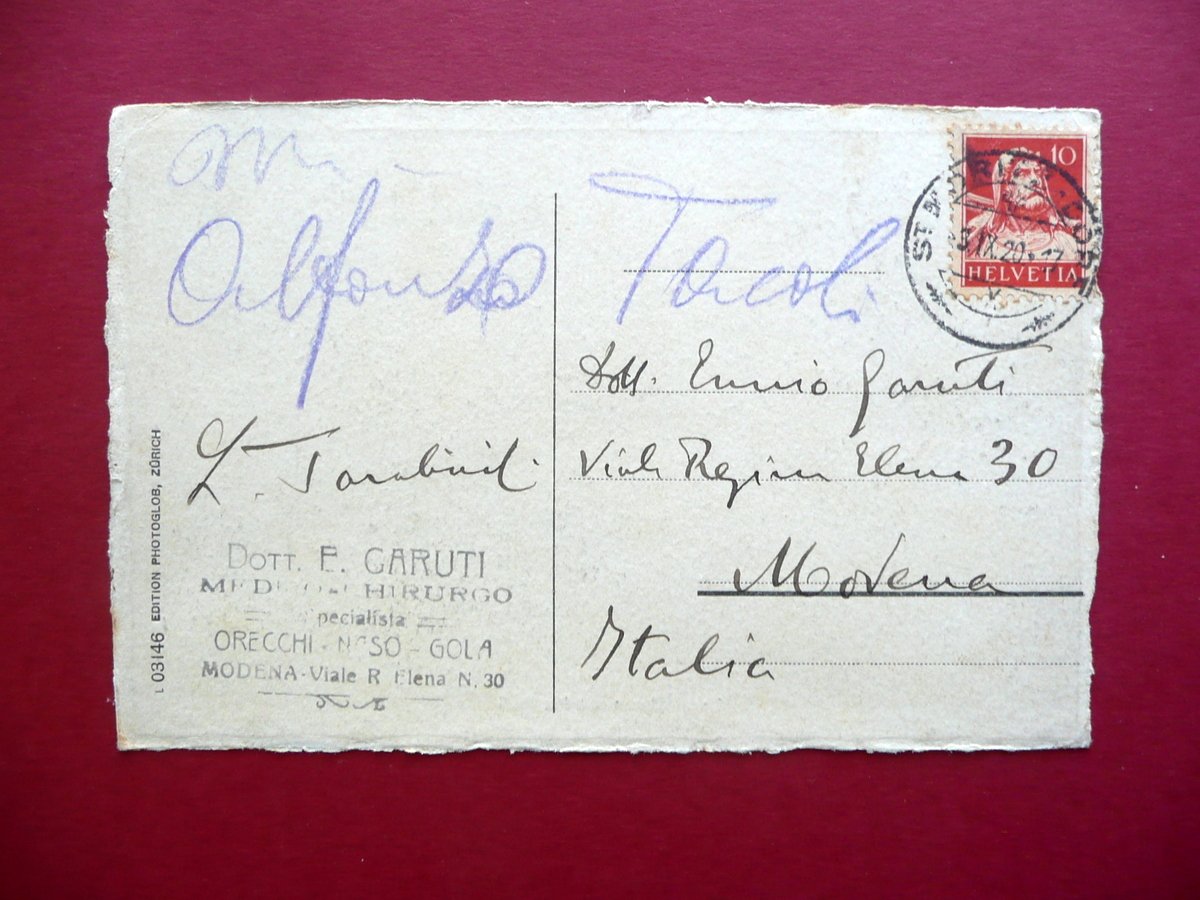 Alfonso Tacoli
L. Tarabini
DOTT. E. GARUTI
MEDICO-CHIRURGO
Specialista
ORECCHI - NASO - GOLA
MODENA - Viale R Elena N. 30
L 03146 EDITION PHOTOGLOB, ZÜRICH
10
HELVETIA
ST. MORITZ-DORF
Dott. Ennio Garuti
Viale Regina Elena 30
Modena
Italia